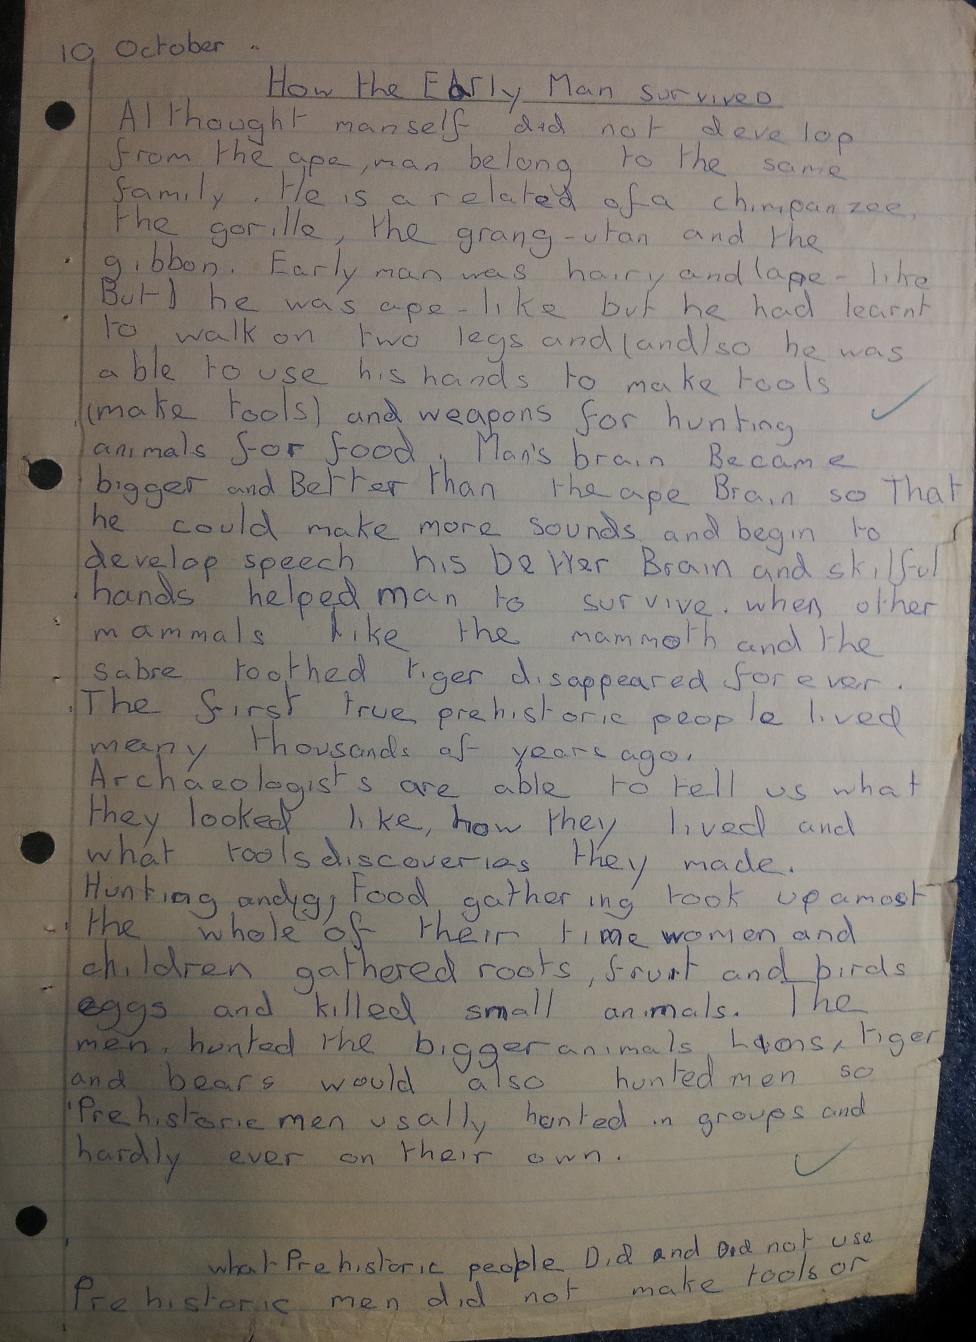 10 October
How the Early Man survived
Althought manself did not develop
from the ape, man belong to the same
family. He is a related of a chimpanzee,
the gorille, the grang-utan and the
gibbon. Early man was hairy and (ape-like
But) he was ape-like but he had learnt
to walk on two legs and (and) so he was
able to use his hands to make tools
(make tools) and weapons for hunting
animals for food. Man's brain Became
bigger and Better than the ape Brain so That
he could make more sounds and begin to
develop speech his better Brain and skilful
hands helped man to survive. when other
mammals like the mammoth and the
sabre toothed tiger disappeared for ever.
The first true prehistoric people lived
many thousands of years ago.
Archaeologists are able to tell us what
they looked like, how they lived and
what tools discoverias they made.
Hunting and Food gathering took up amost
the whole of their time women and
children gathered roots, fruit and birds
eggs and killed small animals. The
men, hunted the bigger animals, tiger
and bears would also hunted men so
Prehistoric men usally hunted in groups and
hardly ever on their own.
what Prehistoric people Did and Did not use
Prehistoric men did not make tools or